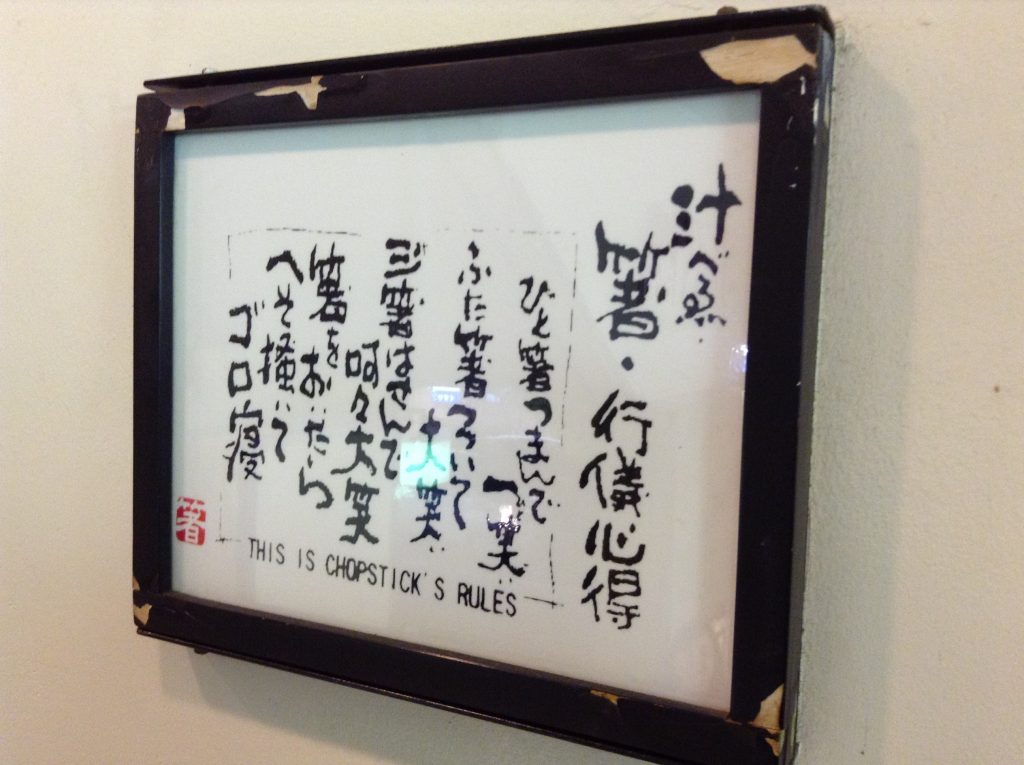 汁べゑ
箸・行儀心得
ひと箸つまんで
一笑
ふた箸つついて
大笑
三箸はさんで
呵々大笑
箸をおいたら
へそ掻いて
ゴロ寝
THIS IS CHOPSTICK'S RULES
箸